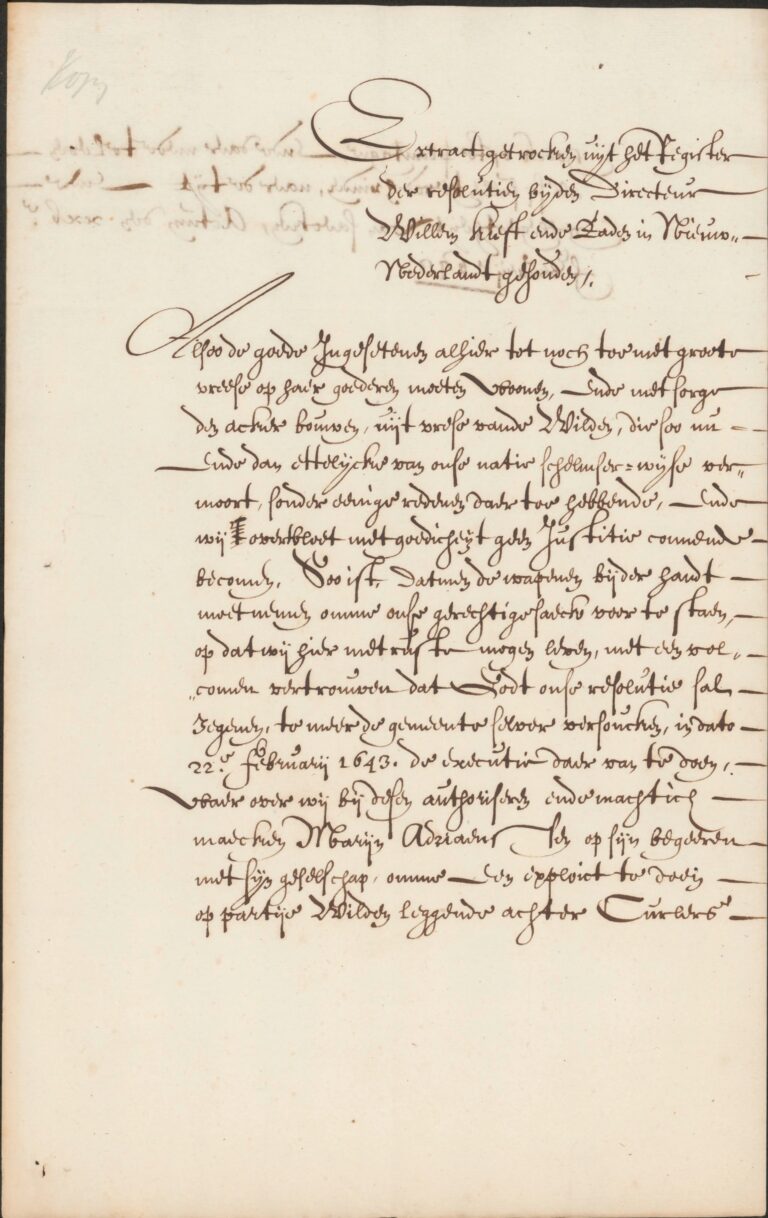 Kopy
Extract getrocken uijt het Register
der resolutien bijden Directeur
Willem Kieft ende Raden in Nieuw„
Nederlandt gehouden /.
Alsoo de goede Ingesetenen alhier tot noch toe met groote
vreese op haer goederen moeten woonen, Ende met sorge
den acker bouwen, uijt vrese vande Wilden, die soo nu
Ende dan ettelijcke van onse natie schelmser=wijse ver„
moort, sonder eenige redenen daer toe hebbende, Ende
wij overbloet met goedicheijt geen Justitie connende
becomen, Soo ist datmen de wapenen bijder handt
moet nemen omme onse gerechtige saecke voor te staen,
op dat wij hier met ruste mogen leven, met een vol„
„comen vertrouwen dat Godt onse resolutie sal
zegenen, te meer de gemeente selver versoucken, in dato
22.e Februarij 1643. de executie daer van te doen,
Waer over wij bij desen authoriseren ende machtich
maecken Marijn Adriaens sen op sijn begeeren
met sijn geselschap, omme Een exploict te doen
op partije Wilden leggende achter Curlers